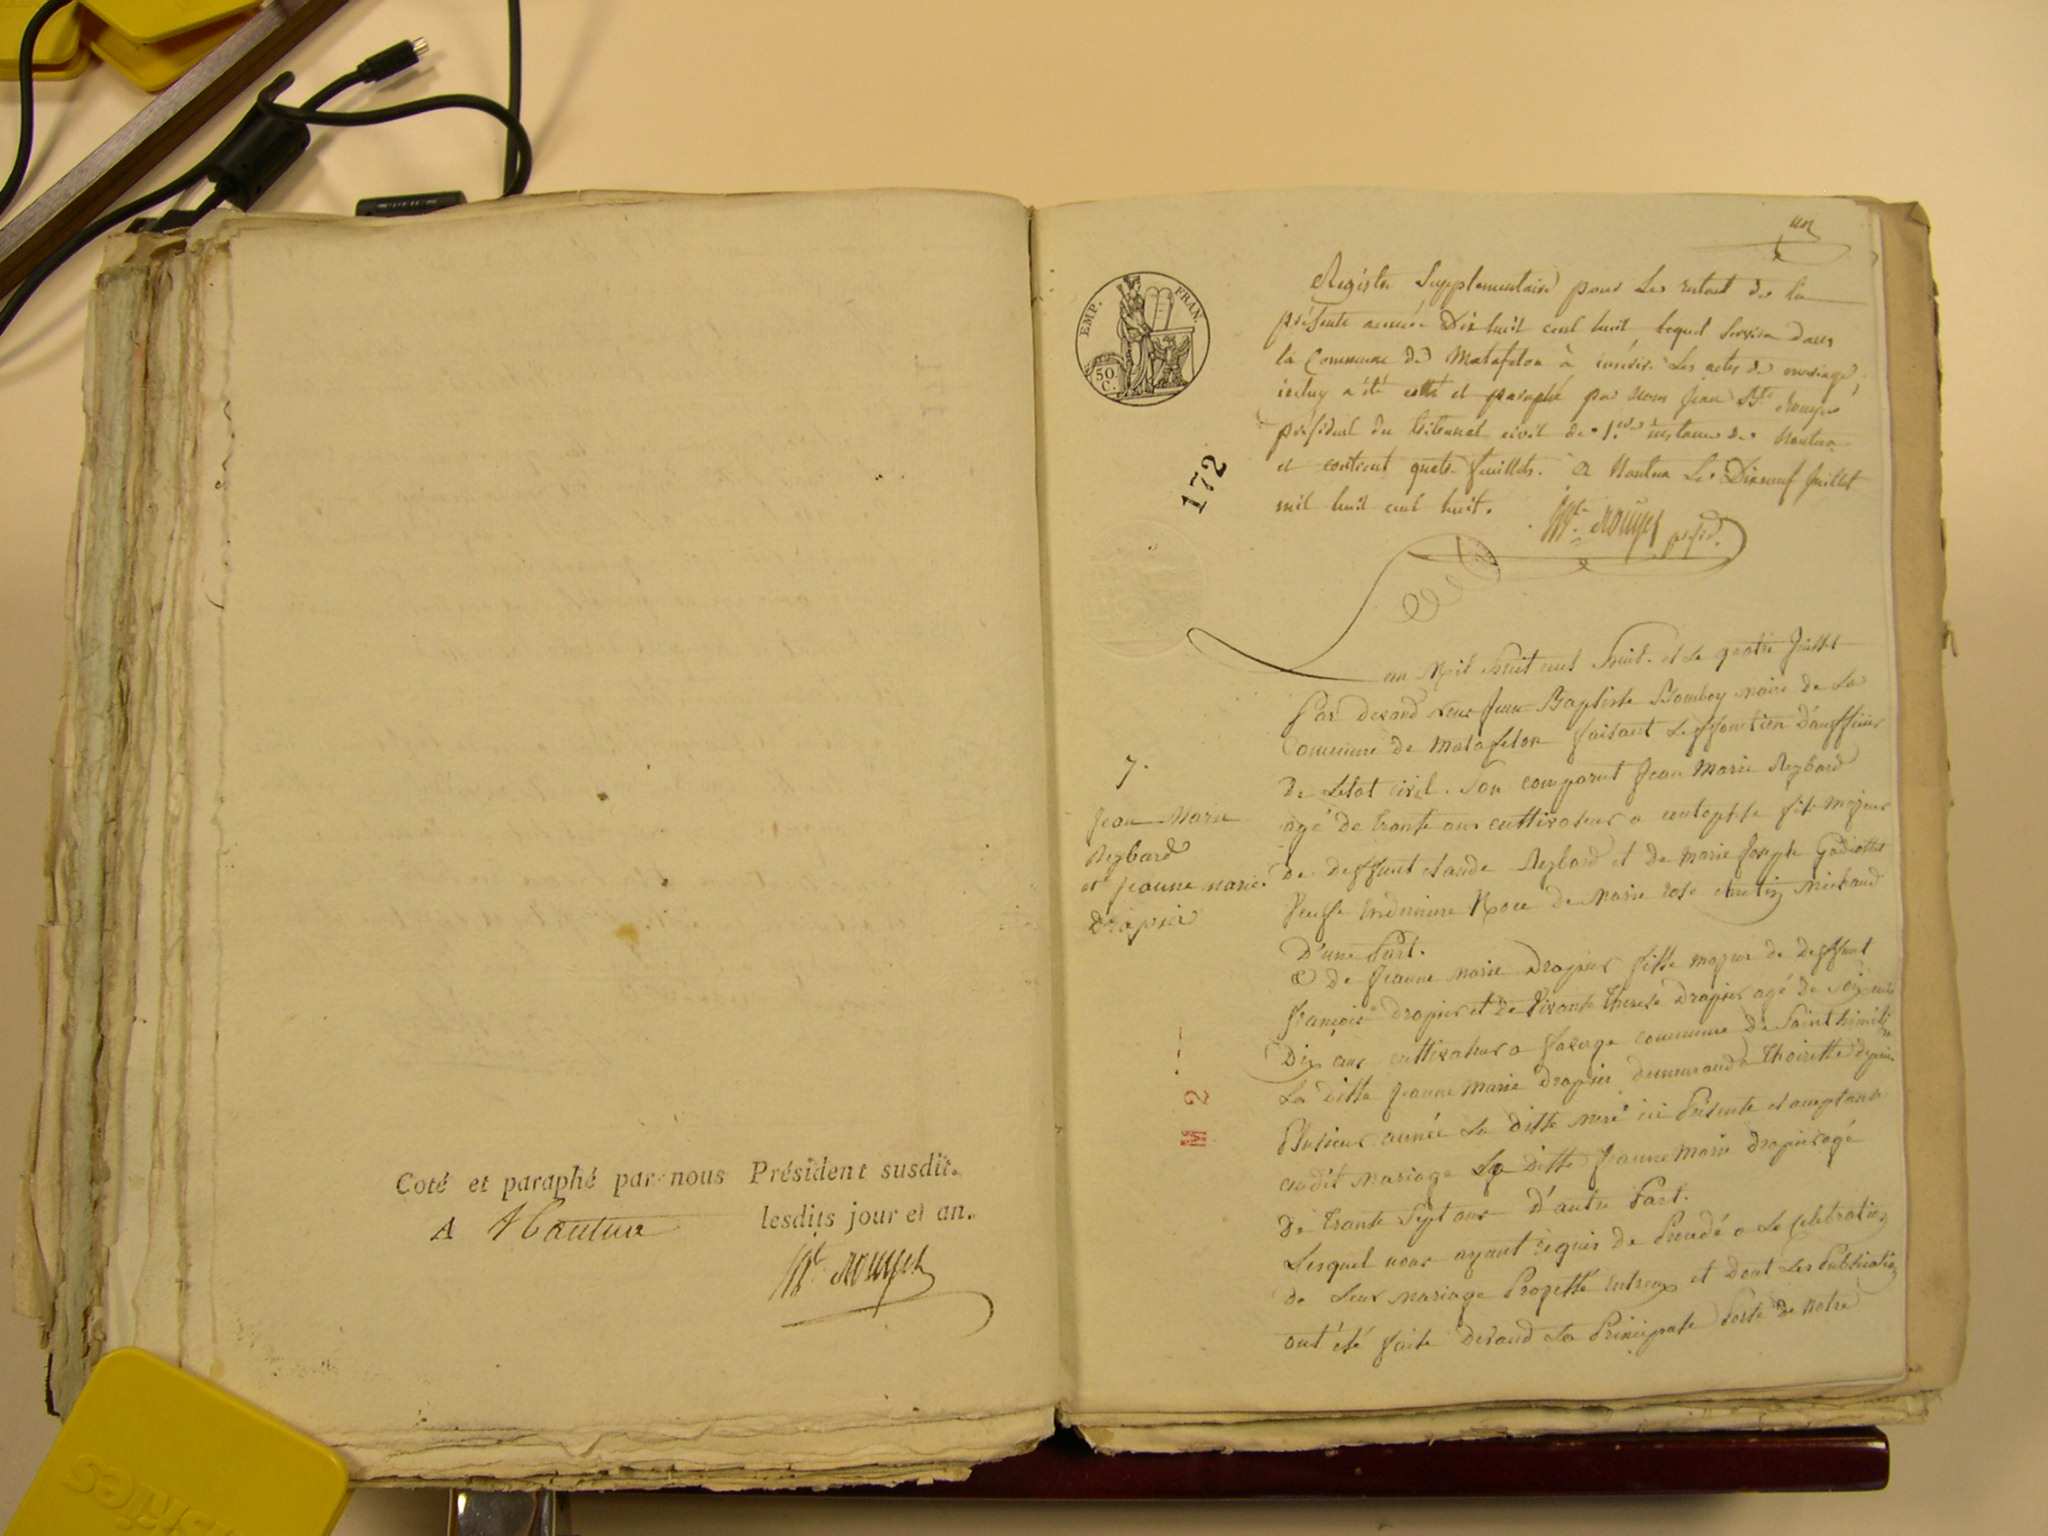 Coté et paraphé par nous Président susdit.
A Nantua lesdits jour et an.
Bte rouyer
un
EMP. FRAN.
50
C.
172
Registre Supplementaire pour Le restant de la
présente année Dix huit cent huit lequel servira dans
la Commune de Matafelon à inscrire Les actes de mariage,
iceluy a été cotté et paraphé par Nous Jean Bte rouyer
président du tribunal civil de 1.ere instance de Nantua
et contient quatre feuillets. a Nantua Le Dixneuf Juillet
mil huit cent huit.
Bte rouyer presid.
7.
Jean Marie
Reybard
et jeanne marie
Drapier
an Mil huit cent huit. et Le quatre Juillet
Par devand nous Jean Baptiste Bomboy maire de La
Commune de Matafelon faisant Les fonction d'aufficier
de Letat civil. Son comparut Jean Marie Reybard
agé de trante ans cultivateur a fils majeur
de deffunt claude Reybard et de marie Joseph
de Marie rose
D'une Part.
& de Jeanne marie Drapier fille majeur de deffunt
françois drapier et de vivante Therese Drapier agé de soixante
Dix ans cultivateur a commune de Saint
La ditte Jeanne Marie drapier demeurand a Thoirette depuis
Plusieur année La ditte mere ici Présente et aceptant
audit mariage La ditte Jeanne Marie drapier agé
De trante Sept ans D'autre Part.
Lesquel nous ayant requis de Procedé a La Celebration
de Leur mariage Projetté entreux et dont Les Publication
ont été faite devand La Principale Porte de notre
M 2